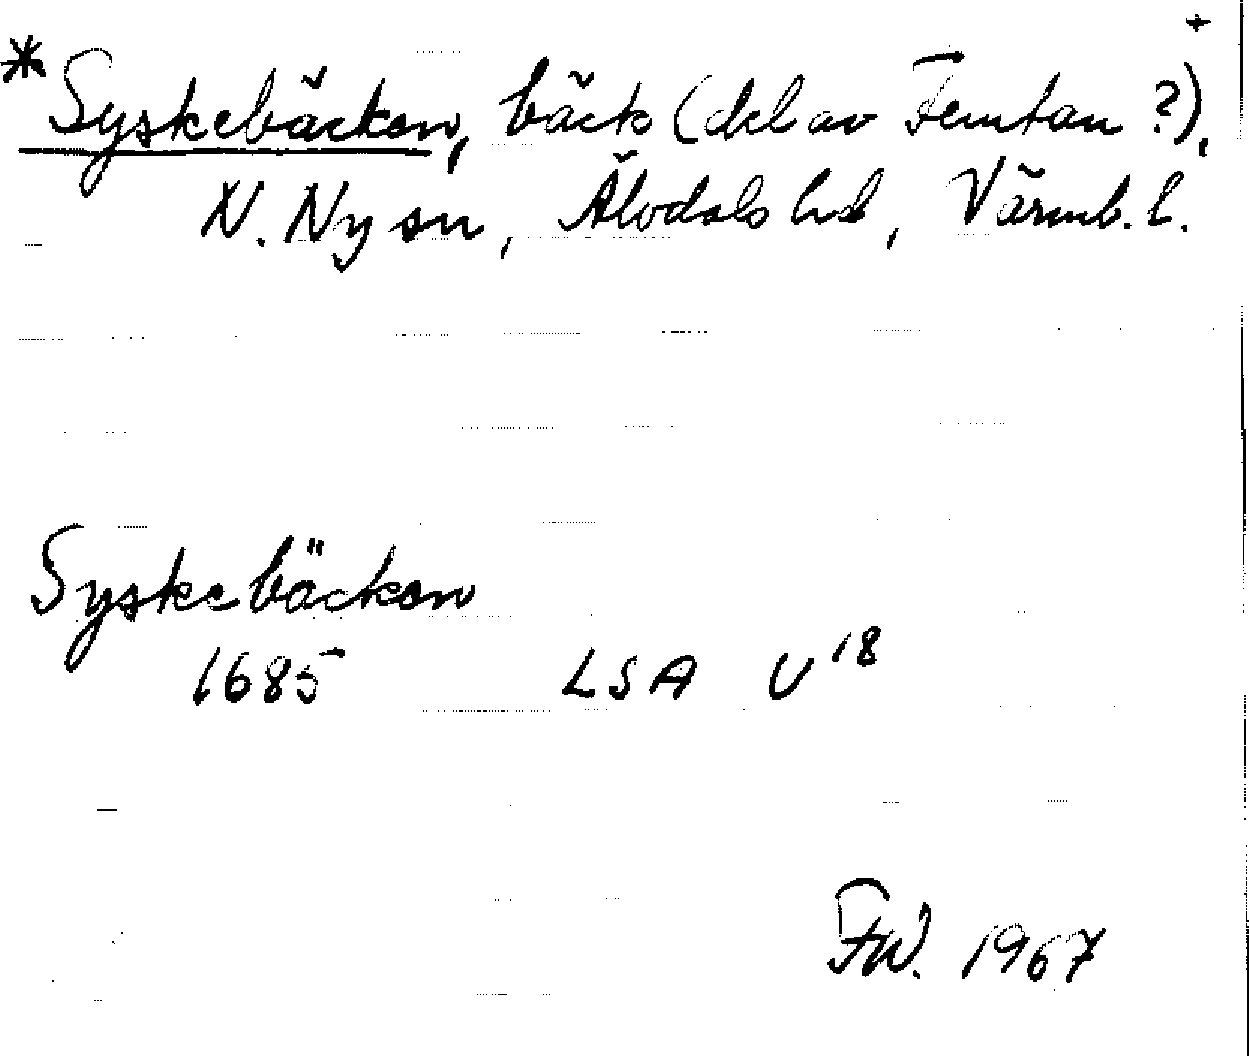 +
* Syskebäcken, bäck (del av Femtan ?),
N. Ny sn, Älvdals hd, Värml. l.
Syskebäcken
1685 LSA U 18
FW. 1967